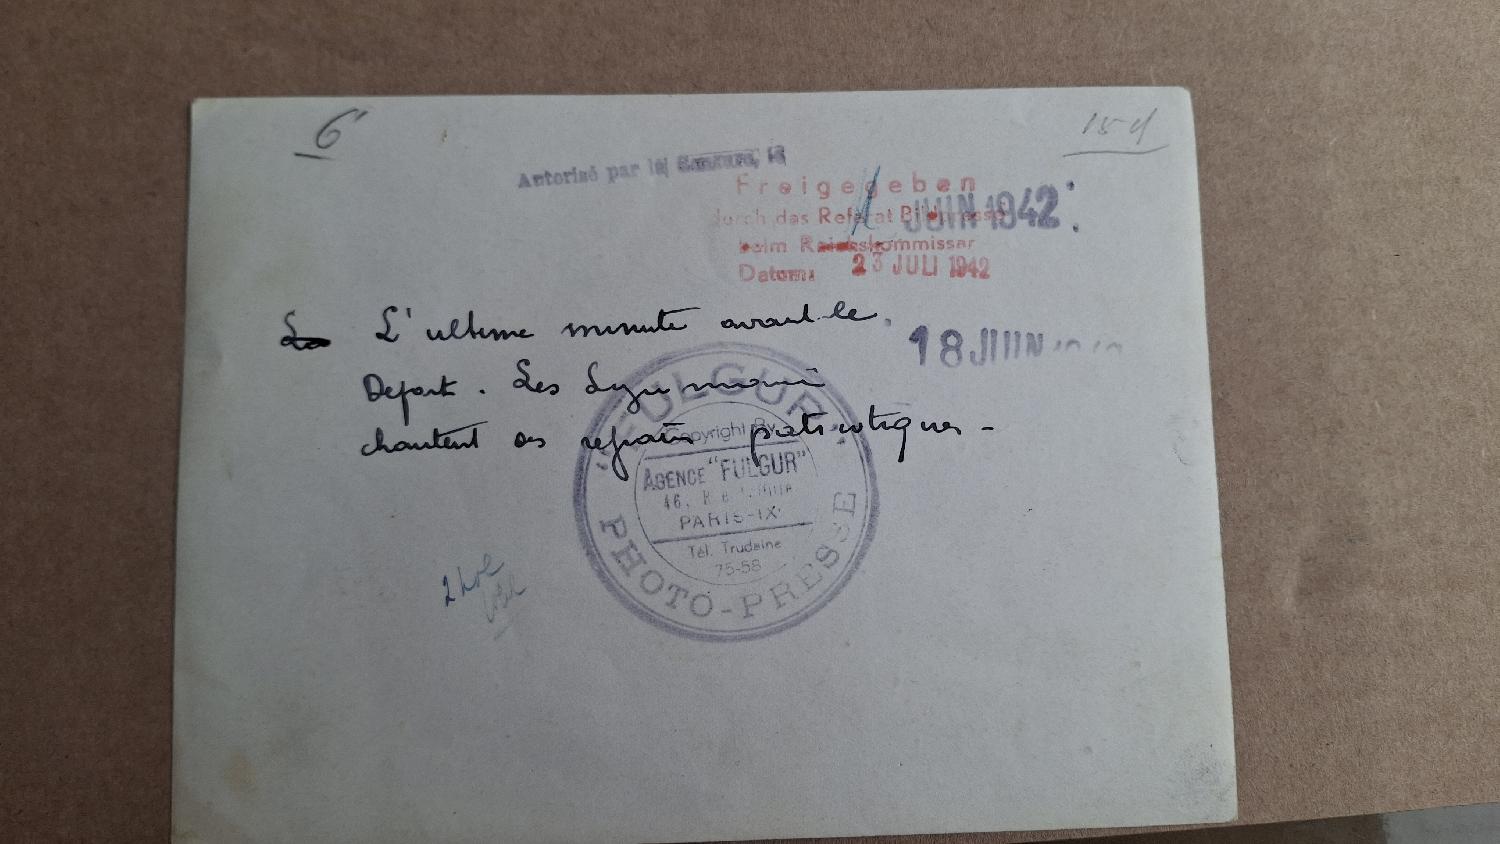 6
Autorisé par la Censure, 18
Freigegeben
durch das Referat Bildpresse
beim Reichskommissar
Datum: 23 JULI 1942
JUIN 1942
L'ultime minute avant le
18 JUIN
Depart. Les
chantent des refrains patriotiques -
"FULGUR"
Copyright By
AGENCE "FULGUR"
46,
PARIS-IX
Tél. Trudaine
75-58
PHOTO-PRESSE